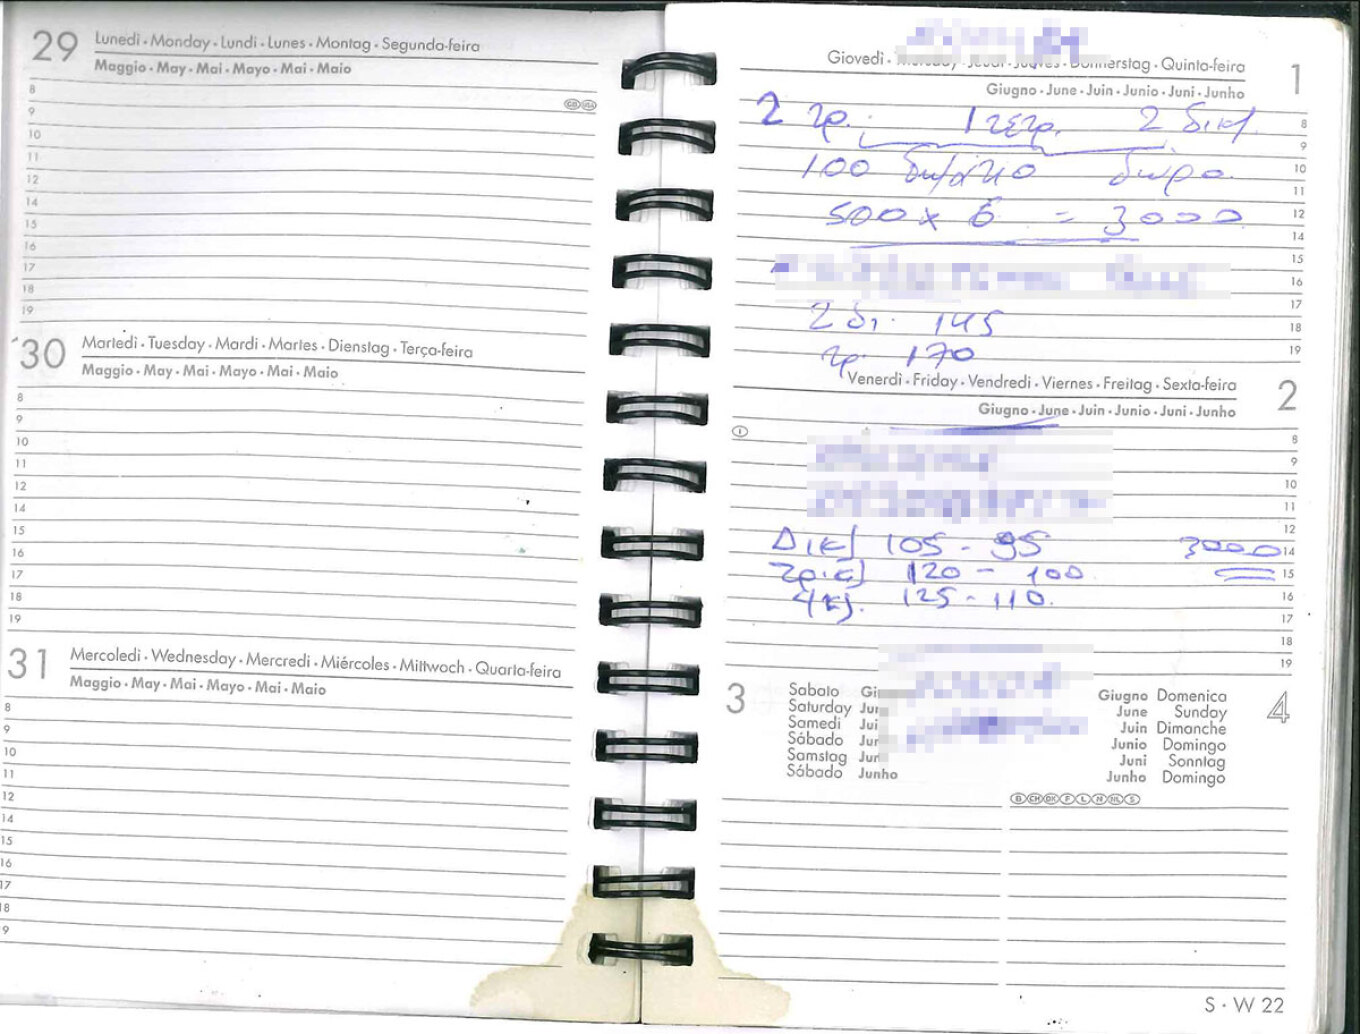 29 Lunedì • Monday • Lundi • Lunes • Montag • Segunda-feira
Maggio • May • Mai • Mayo • Mai • Maio
8
GB USA
9
10
11
12
14
15
16
17
18
19
30 Martedì • Tuesday • Mardi • Martes • Dienstag • Terça-feira
Maggio • May • Mai • Mayo • Mai • Maio
8
9
10
11
12
14
15
16
17
18
19
31 Mercoledì • Wednesday • Mercredi • Miércoles • Mittwoch • Quarta-feira
Maggio • May • Mai • Mayo • Mai • Maio
8
9
10
11
12
14
15
16
17
18
9
Giovedì • Donnerstag • Quinta-feira 1
Giugno • June • Juin • Junio • Juni • Junho
2 τρ. 1 τετρ. 2 δικλ. 8
9
100 δωμάτιο δώρο. 10
11
500 x 6 = 3000 12
14
15
16
17
2 δι. 145 18
τρ. 170 19
Venerdì • Friday • Vendredi • Viernes • Freitag • Sexta-feira 2
Giugno • June • Juin • Junio • Juni • Junho
I 8
9
10
11
12
Δικλ 105 - 95 3000 14
τρικλ 120 - 100 15
4κλ. 125 - 110. 16
17
18
19
3 Sabato
Saturday
Samedi
Sábado
Samstag
Sábado Junho
Giugno Domenica 4
June Sunday
Juin Dimanche
Junio Domingo
Juni Sonntag
Junho Domingo
B CH DK F L N NL S
S • W 22